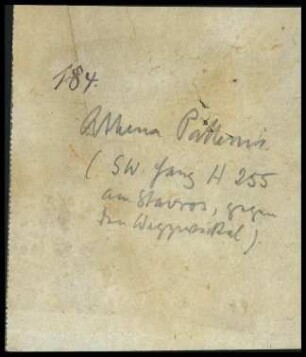 184.
Athena Pallenis.
(SW. Hang H 255
am Stavros, gegen
den Weggewinkel).